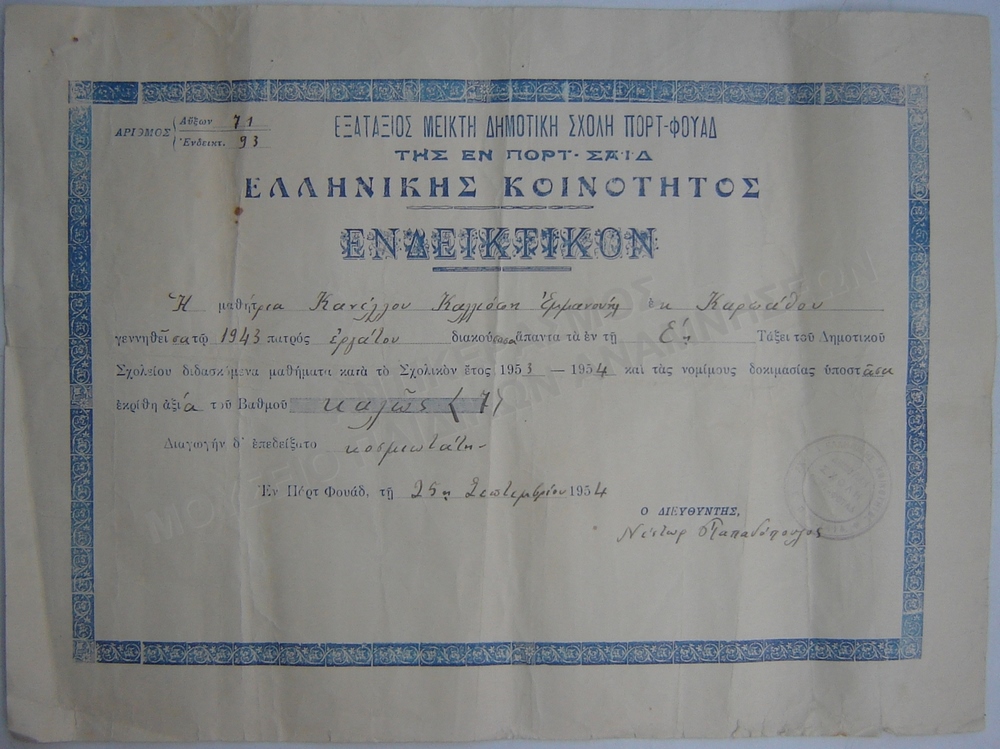 ΑΡΙΘΜΟΣ
Αὔξων 71
Ἐνδεικτ. 93
ΕΞΑΤΑΞΙΟΣ ΜΕΙΚΤΗ ΔΗΜΟΤΙΚΗ ΣΧΟΛΗ ΠΟΡΤ-ΦΟΥΑΔ
ΤΗΣ ΕΝ ΠΟΡΤ-ΣΑ·Ι·Δ
ΕΛΛΗΝΙΚΗΣ ΚΟΙΝΟΤΗΤΟΣ
ΕΝΔΕΙΚΤΙΚΟΝ
Ἡ μαθήτρια Κανέλλου Καλλιόπη Ἐμμανουὴλ ἐκ Καρπάθου
γεννηθεῖσα τῷ 1943 πατρὸς ἐργάτου διακούσασα ἅπαντα τὰ ἐν τῇ Ε΄ῃ Τάξει τοῦ Δημοτικοῦ
Σχολείου διδασκόμενα μαθήματα κατὰ τὸ Σχολικὸν ἔτος 1953 — 1954 καὶ τὰς νομίμους δοκιμασίας ὑποστᾶσα
ἐκρίθη ἀξία τοῦ Βαθμοῦ καλῶς (7)
Διαγωγὴν δ᾽ ἐπεδείξατο κοσμιωτάτην
Ἐν Πὸρτ Φουάδ, τῇ 25ῃ Σεπτεμβρίου 1954
Ο ΔΙΕΥΘΥΝΤΗΣ,
Νέστωρ Παπαδόπουλος